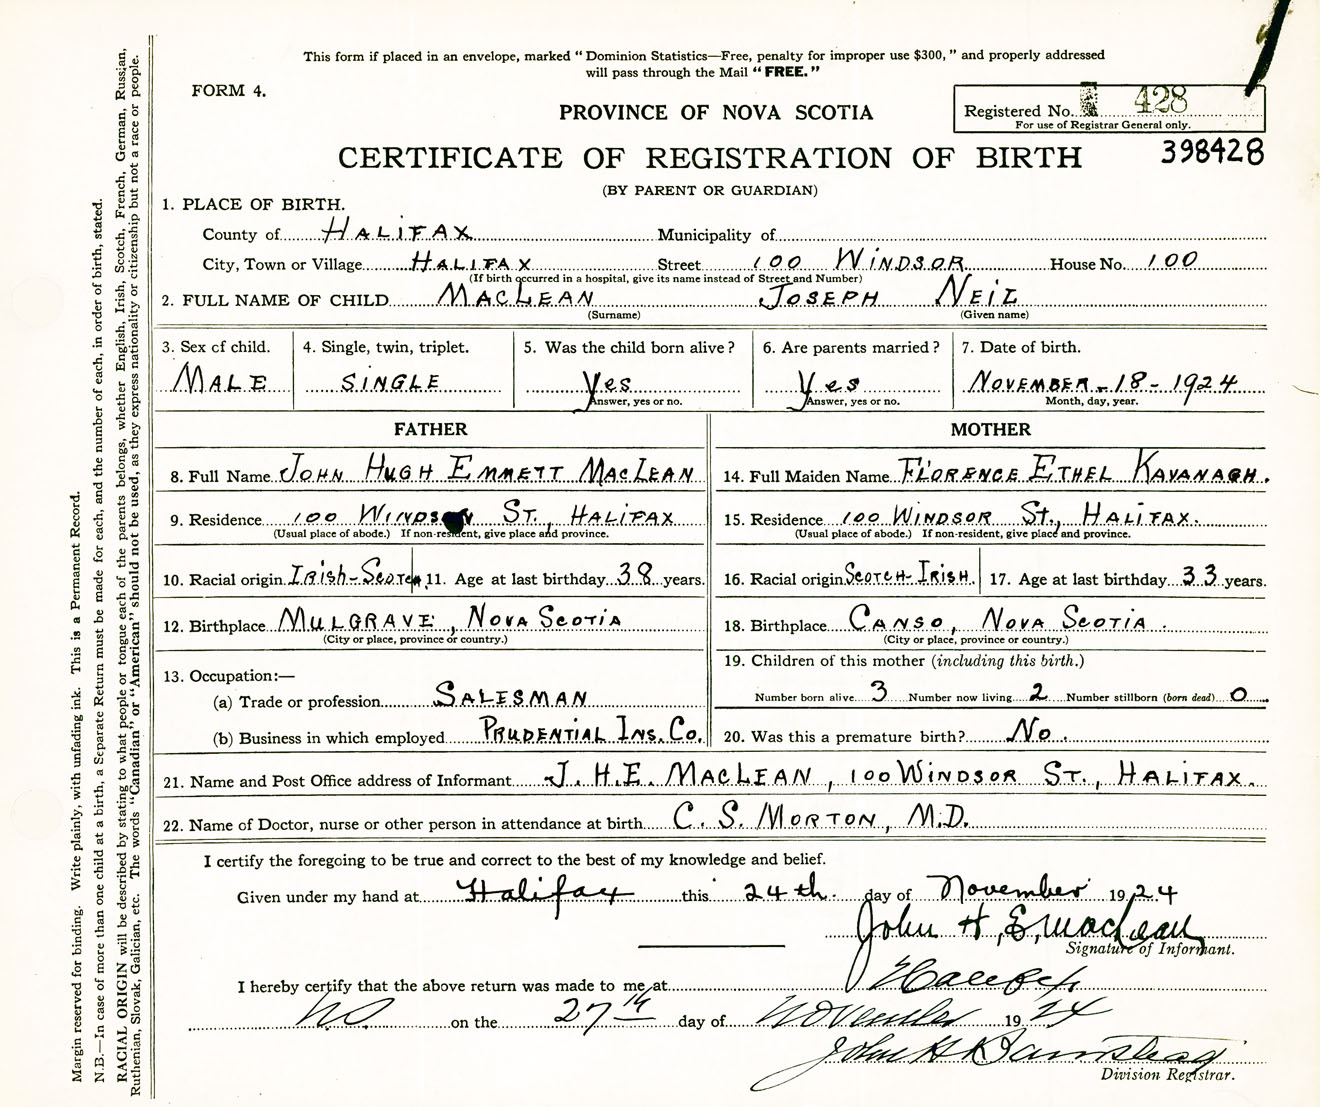 This form if placed in an envelope, marked "Dominion Statistics—Free, penalty for improper use $300," and properly addressed
will pass through the Mail "FREE."
FORM 4.
Registered No. 428
For use of Registrar General only.
PROVINCE OF NOVA SCOTIA
398428
CERTIFICATE OF REGISTRATION OF BIRTH
(BY PARENT OR GUARDIAN)
1. PLACE OF BIRTH.
County of HALIFAX Municipality of
City, Town or Village HALIFAX Street 100 WINDSOR House No. 100
(If birth occurred in a hospital, give its name instead of Street and Number)
2. FULL NAME OF CHILD MACLEAN JOSEPH NEIL
(Surname) (Given name)
3. Sex of child. 4. Single, twin, triplet. 5. Was the child born alive? 6. Are parents married? 7. Date of birth.
MALE SINGLE Yes Yes NOVEMBER-18-1924
Answer, yes or no. Answer, yes or no. Month, day, year.
FATHER MOTHER
8. Full Name JOHN HUGH EMMETT MACLEAN 14. Full Maiden Name FLORENCE ETHEL KAVANAGH.
9. Residence 100 WINDSOR ST., HALIFAX 15. Residence 100 WINDSOR St., HALIFAX.
(Usual place of abode.) If non-resident, give place and province. (Usual place of abode.) If non-resident, give place and province.
10. Racial origin IRISH-SCOTCH 11. Age at last birthday 38 years. 16. Racial origin SCOTCH-IRISH. 17. Age at last birthday 33 years.
12. Birthplace MULGRAVE, NOVA SCOTIA 18. Birthplace CANSO, NOVA SCOTIA.
(City or place, province or country.) (City or place, province or country.)
19. Children of this mother (including this birth.)
13. Occupation:—
(a) Trade or profession SALESMAN Number born alive 3 Number now living 2 Number stillborn (born dead) 0
(b) Business in which employed PRUDENTIAL INS. CO. 20. Was this a premature birth? No.
21. Name and Post Office address of Informant J. H. E. MACLEAN, 100 WINDSOR ST., HALIFAX.
22. Name of Doctor, nurse or other person in attendance at birth C. S. MORTON, M.D.
I certify the foregoing to be true and correct to the best of my knowledge and belief.
Given under my hand at Halifax this 24th. day of November 1924
John H. E. MacLean
Signature of Informant.
I hereby certify that the above return was made to me at Halifax
NS on the 27th day of November 1924
John H
Division Registrar.
Margin reserved for binding. Write plainly, with unfading ink. This is a Permanent Record.
N.B.—In case of more than one child at a birth, a Separate Return must be made for each, and the number of each, in order of birth, stated.
RACIAL ORIGIN will be described by stating to what people or tongue each of the parents belongs, whether English, Irish, Scotch, French, German, Russian,
Ruthenian, Slovak, Galician, etc. The words "Canadian" or "American" should not be used, as they express nationality or citizenship but not a race or people.